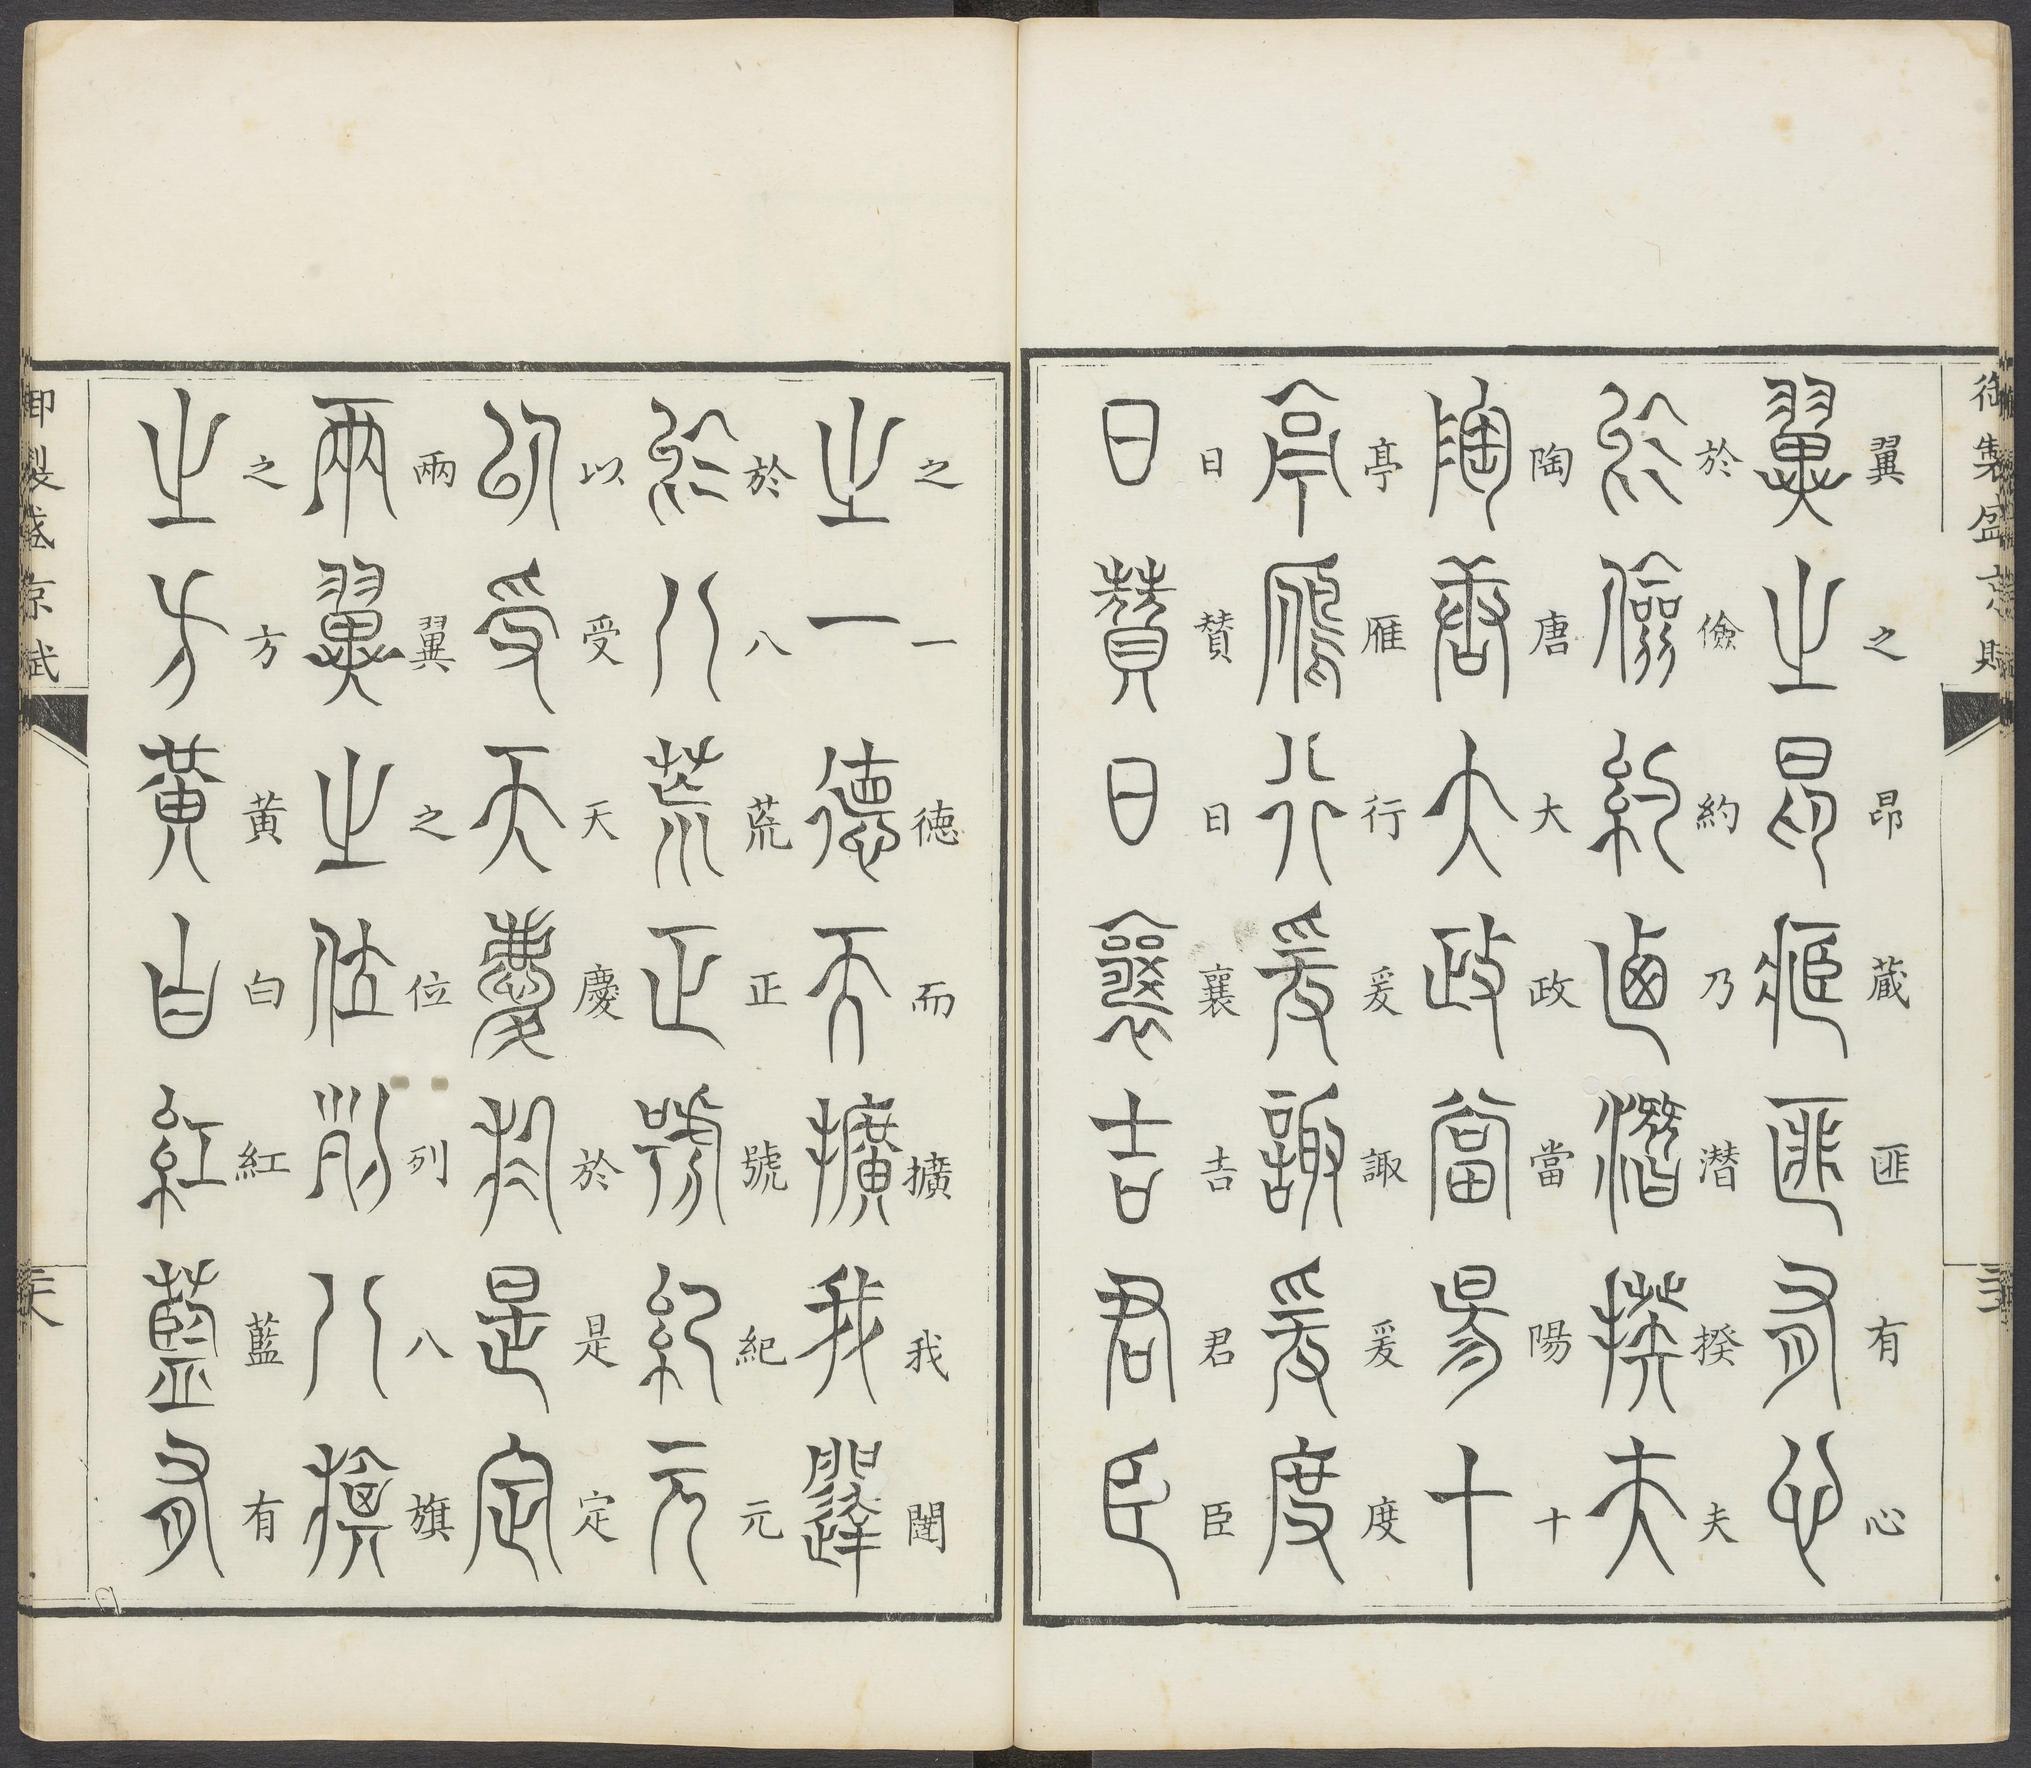 御製盛京賦
翼之昂蔵匪有心
翼之昂蔵匪有心
於儉約乃潜揆夫
於儉約乃潜揆夫
陶唐大政當陽十
陶唐大政當陽十
亭雁行爰諏爰度
亭雁行爰諏爰度
日賛日襄吉君臣
日賛日襄吉君臣
之一徳而擴我闥
之一徳而擴我闥
於八荒正號紀元
於八荒正號紀元
以受天慶於是定
以受天慶於是定
兩翼之位列八旗
兩翼之位列八旗
之方黃白紅藍有
之方黃白紅藍有
御製盛京賦